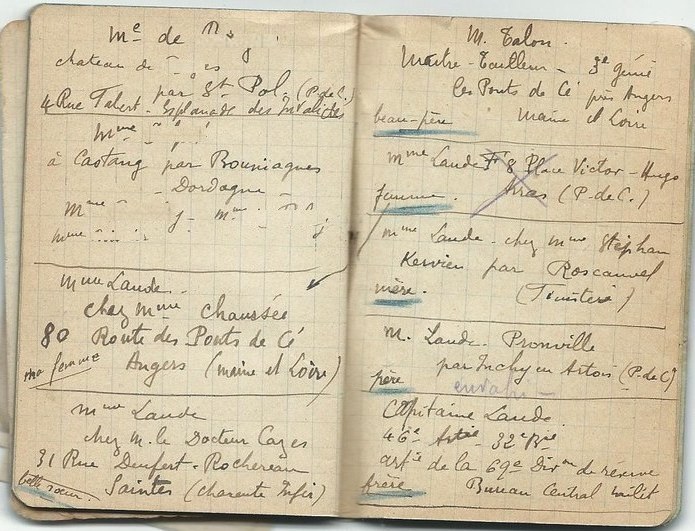 Me de
chateau de
par St Pol. (P. de C.)
4 Rue Talert - Esplanade des Invalides
Mme
à Castang par Bouniagues
- Dordogne
Mme
Mme
Mme Laude.
chez Mme Chaussée
80 Route des Ponts de Cé
ma femme Angers (Maine et Loire)
Mme Laude
chez M. le Docteur Cazes
31 Rue Denfert-Rochereau
belle sœur. Saintes (Charente Infre)
M. Talon.
Maitre-Tailleur - 3e génie
Les Ponts de Cé près Angers
beau-père Maine et Loire
Mme Laude 8 Place Victor-Hugo
femme. Arras (P. de C.)
Mme Laude. chez Mme Stéphan
Kervien par Roscanvel
mère. (Finistère)
M. Laude. Pronville
par Inchy en Artois (P. de C)
père envahi
Capitaine Laude.
46e Artie 32e Bie
artie de la 69e Divon de réserve
frère Bureau Central milit